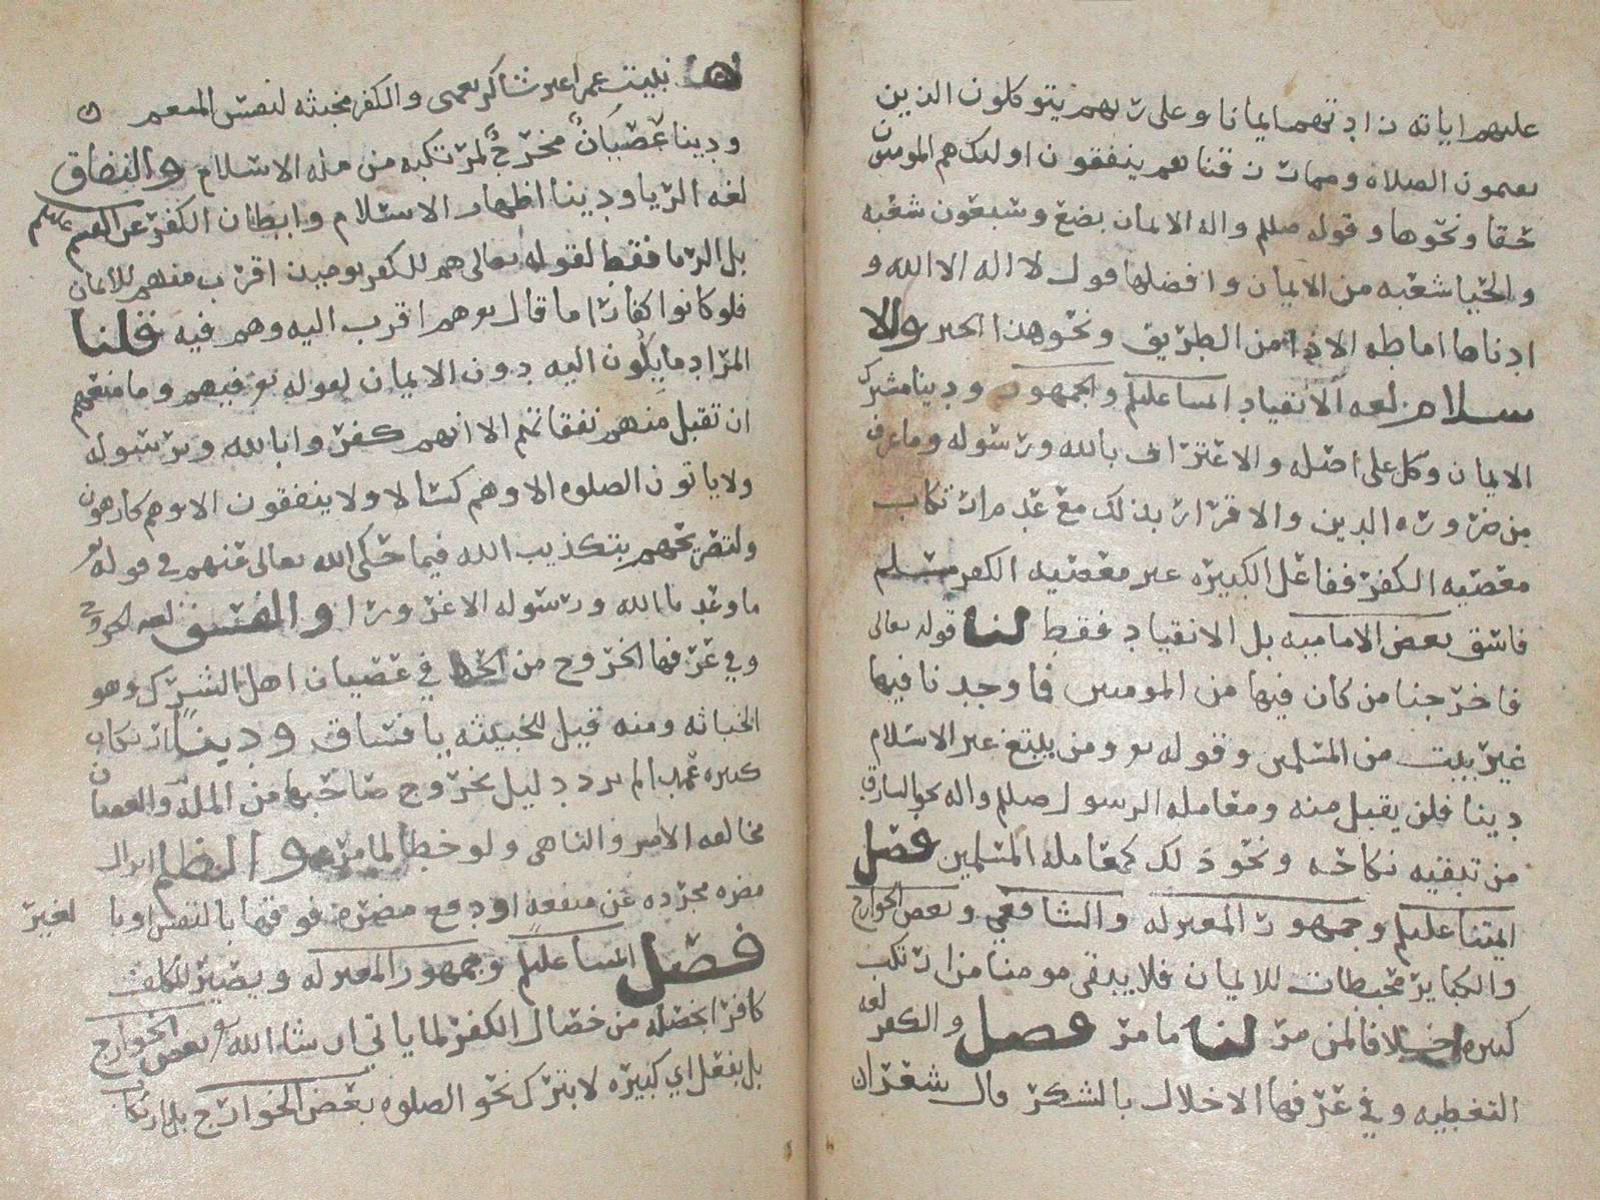 عليهم اياته زادتهم ايمانا وعلى ربهم يتوكلون الذين
يقيمون الصلاه ومما رزقناهم ينفقون اولئك هم المومنون
حقا ونحوها وقوله صللم واله الايمان بضع وسبعون شعبه
والحيا شعبه من الايمان وافضلها قول لا اله الا الله و
ادناها اماطه الاذا من الطريق ونحو هذا الخبر والا
سلام لغه الانقياد ايمتنا عليلم والجمهور ودينا مشترك
الايمان وكل على اصله والاعتراف بالله ورسوله وما عرف
من ضروره الدين والاقرار بذلك مع عدم ارتكاب
معصيه الكفر ففاعل الكبيره غير معصيه الكفر مسلم
فاسق بعض الاماميه بل الانقياد فقط لنا قوله تعالى
فاخرجنا من كان فيها من المومنين فما وجدنا فيها
غير بيت من المسلمين وقوله تع ومن يبتغ غير الاسلام
دينا فلن يقبل منه ومعامله الرسول صللم واله نحو السارق
من تبقيه نكاحه ونحو ذلك كمعامله المسلمين فصل
ايمتنا عليلم وجمهور المعتزله والشافعي وبعض الخوارج
والكباير محبطات للايمان فلا يبقى مومنا من ارتكب
كبيره خلافا لمن مر لنا ما مر فصل والكفر لغه
التغطيه وفي عرفها الاخلال بالشكر قال شعرا
نبيت عمرا غير شاكر نعمى والكفر مخبثه لنفس المنعم
ودينا عصيان مخرج لمرتكبه من مله الاسلام والنفاق
لغه الريا ودينا اظهار الاسلام وابطان الكفر عن القسم عليلم
بل الريا فقط لقوله تعالى هم للكفر يوميذ اقرب منهم للايمان
فلو كانوا كفارا ما قال تع هم اقرب اليه وهم فيه قلنا
المراد ما يكون اليه دون الايمان لقوله تع فيهم وما منعهم
ان تقبل منهم نفقاتهم الا انهم كفروا بالله وبرسوله
ولا ياتون الصلوه الا وهم كسالا ولا ينفقون الا وهم كارهون
ولتصريحهم بتكذيب الله فيما حكى الله تعالى عنهم في قوله تع
ما وعدنا الله ورسوله الا غرورا والفسق لغه الخروج
وفي عرفها الخروج من الحد في عصيان اهل الشرك وهو
الخباثه ومنه قيل للخبيثه يا فساق ودينا ارتكاب
كبيره عمدا لم يرد دليل بخروج صاحبها من المله والعصيان
مخالفه الامر والناهي ولو خطا لما مر والظلم انزال
مضره مجرده عن منفعه او دفع مضره فوقها بالنفس او با لغير
فصل ايمتنا عليلم وجمهور المعتزله ويصير المكلف
كافرا بخصله من خصال الكفر لما ياتي ان شا الله تع بعض الخوارج
بل بفعل اي كبيره لا بترك نحو الصلوه بعض الخوارج بل ارتكاب